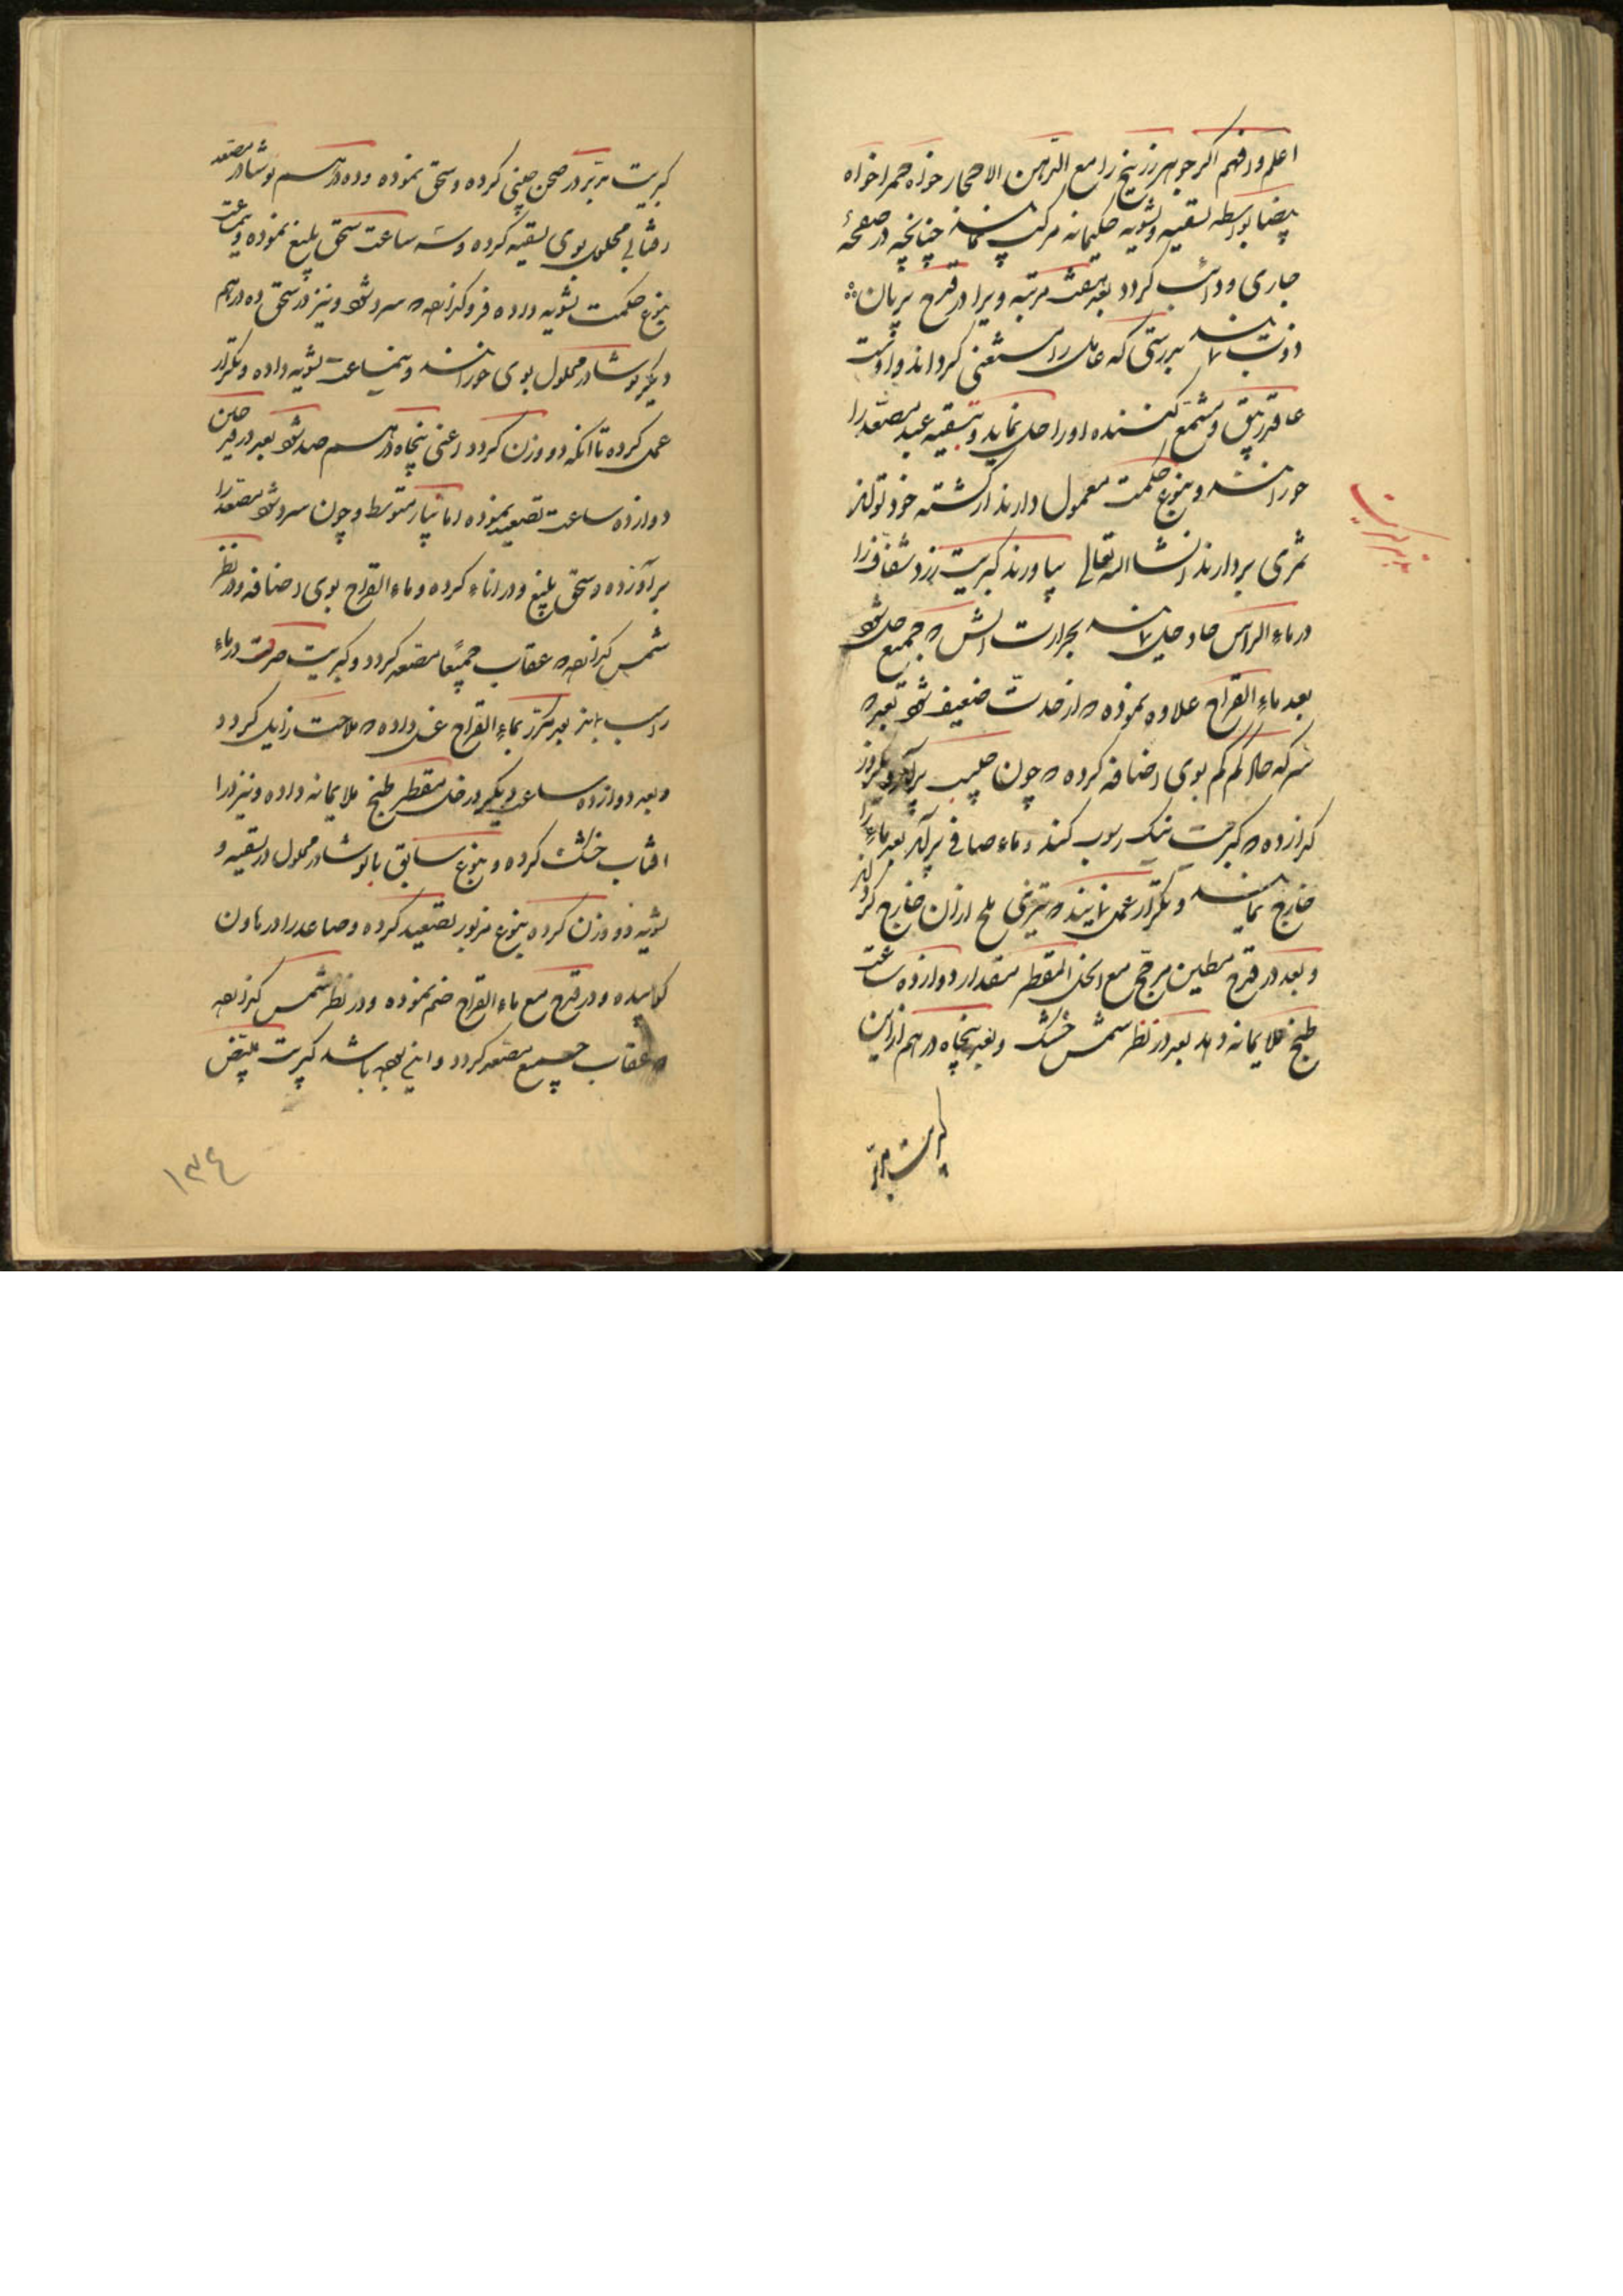 اعلم وافهم اگر جوهر زرنیخ را مع الدهن الاحجار خواه حمرا خواه
بیضا بواسطه تسقیه و تشویه حکیمانه مرکب نمایند چنانچه در صفحهٔ
جاری و ذائب گردد بعد هفت مرتبه ویرا در قرع
ذوب نمایند بدرستی که عامل را مستغنی گرداند و اوست
عاقد زیبق و مشمع کننده اورا حل نماید و بتسقیه عبد مصعد را
خورانند و بنوع حکمت معمول دارند از کشته خود تو
ثمری بردارند انشاالله تعالی بیاورند کبریت زرد شفاف را
در ماء الراس حاد حل نمایند بحرارت آتش که جمیع حل شود
بعد ماء القراح علاوه نموده که از حدت ضعیف شود بعده
سرکه حلا کم کم بوی اضافه کرده که چون حلیب برآید و یکروز
گذارده که کبریت نیک رسوب کند و ماء صافی برآید بعد ماء را
خارج نمایند و تکرار عمل نمایند که تیزی ملح از آن خارج گردد
و بعد در قرع مطین مزجج مع الخل المقطر مقدار دوازده ساعت
طبخ ملایمانه دهد بعد در نظر شمس خشک و بعد پنجاه درهم از این
کبریت مدبر
تدبیر کبریت
کبریت مدبر در صحن چینی کرده و سحق نموده و ده درهم نوشادر مصعد
محلول بوی تسقیه کرده و سه ساعت سحق بلیغ نموده و
بنوع حکمت تشویه داده فرو گذارند که سرد شود و نیز در سحق ده درهم
دیگر نوشادر محلول بوی خورانند و نیمساعت تشویه داده و بتکرار
عمل کرده تا آنکه دو وزن گردد اعنی پنجاه درهم صد شود بعد در
دوازده ساعت تصعید نموده اما بنار متوسط و چون سرد شود مصعد را
برآورده و سحق بلیغ و در اناء کرده و ماء القراح بوی اضافه و در نظر
شمس گذارند که عقاب جمیعا مصعد گردد و کبریت صرف در ماء
راسب نماند بعد مکرر بماء القراح غسل داده که ملاحت زایل گردد
و بعد دوازده ساعت دیگر در خل مقطر طبخ ملایمانه داده و نیز در
آفتاب خشک کرده و بنوع سابق با نوشادر محلول در تسقیه و
تشویه دو وزن کرده بنوع مزبور تصعید کرده و صاعد را در هاون
کوبیده و در قرع مع ماء القراح ضم نموده و در نظر شمس گذارند
که عقاب جمیع مصعد گردد و اینچه باشد کبریت مبیض
١٣٤